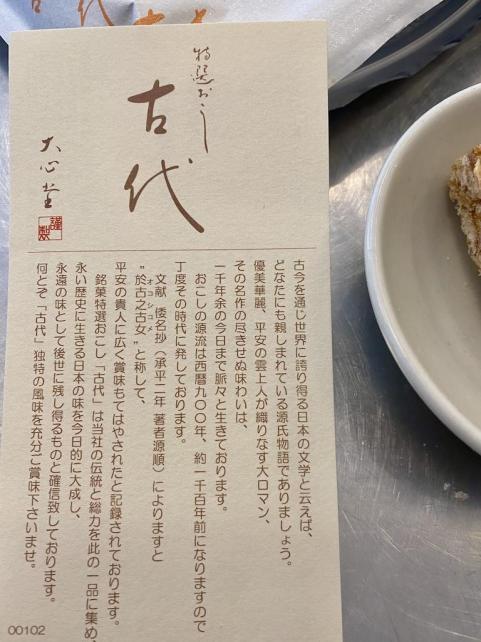 特選おこし
古代
大心堂
謹製
古今を通じ世界に誇り得る日本の文学と云えば、
どなたにも親しまれている源氏物語でありましょう。
優美華麗、平安の雲上人が織りなす大ロマン、
その名作の尽きせぬ味わいは、
一千年余の今日まで脈々と生きております。
おこしの源流は西暦九〇〇年、約一千百年前になりますので
丁度その時代に発しております。
文献 倭名抄（承平二年 著者源順）によりますと
〝於古之古女〟と称して、
オコシコメ
平安の貴人に広く賞味もてはやされたと記録されております。
銘菓特選おこし「古代」は当社の伝統と総力を此の一品に集め、
永い歴史に生きる日本の味を今日的に大成し、
永遠の味として後世に残し得るものと確信致しております。
何とぞ「古代」独特の風味を充分ご賞味下さいませ。
00102
古代